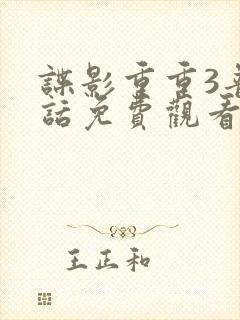 諜影重重3
話免費觀看
王正和